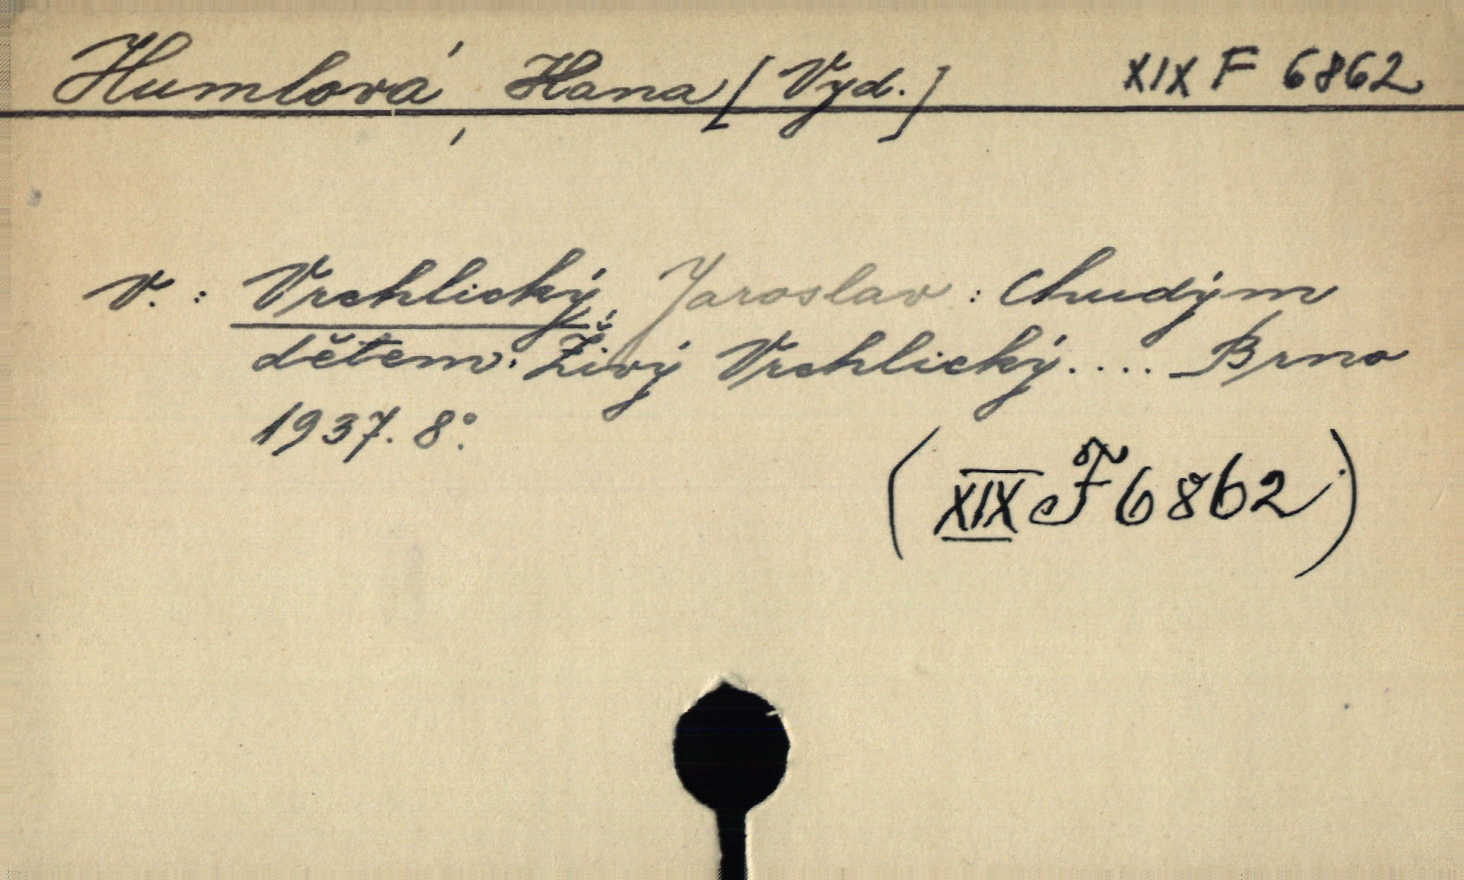 Humlová, Hana [Vyd.] XIX F 6862
v. : Vrchlický, Jaroslav : Chudým
dětem : Živý Vrchlický.... Brno
1937. 8°.
(XIX F 6862)